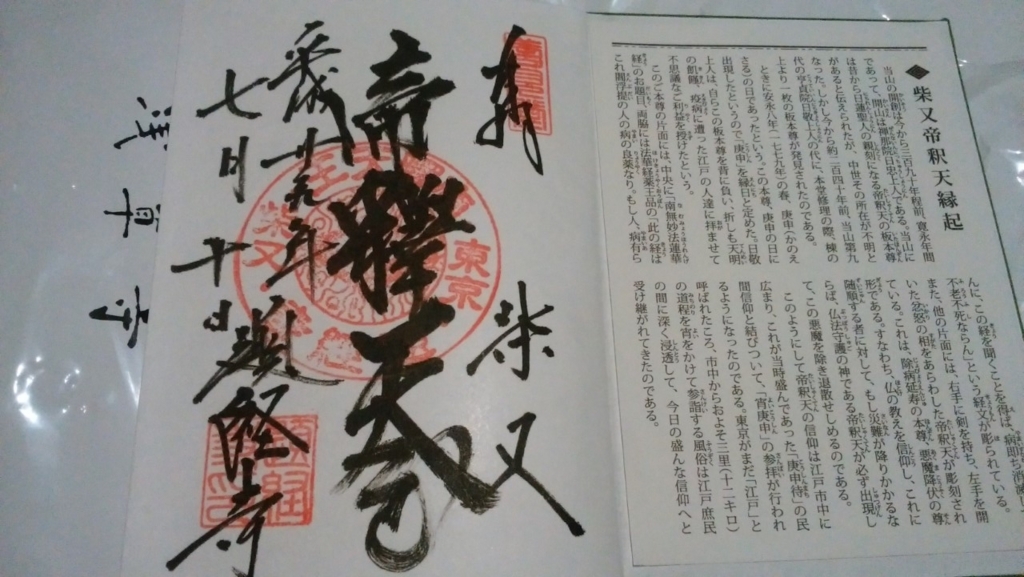 柴又帝釈天縁起
当山の開創は今から三百九十年程前、寛永年間
であって、開山は禅那院日忠上人である。当山に
は昔から日蓮聖人の親刻になる帝釈天の板本尊
があると伝えられたが、中世その所在が不明と
なった。しかし今から約二百四十年前、当山第九
代の亨貞院日敬上人の代に、本堂修理の際、棟の
上より一枚の板本尊が発見されたのである。
ときに安永八年(一七七九年)の春、庚申(かのえ
さる)の日であったという。この本尊、庚申の日に
出現したというので「庚申」を縁日と定めた。日敬
上人は、自らこの板本尊を背に負い、折しも天明
の飢饉、疫病に遭った江戸の人々達に拝ませて
不思議なご利益を授けたという。
このご本尊の片面には、中央に「南無妙法蓮華
経」のお題目、両脇には法華経薬王品の「此の経は
これ閻浮提の人の病の良薬なり。もし人、病有ら
んに、この経を聞くことを得ば、病即ち消滅して
不老不死ならん」という経文が彫られている。
また、他の片面には、右手に剣を持ち、左手を開
いた忿怒の相をあらわした帝釈天が彫刻され
ている。これは、除病延寿の本尊、悪魔降伏の尊
形である。すなわち、仏の教えを信仰し、これに
随順する者に対して、もし災難が降りかかるな
らば、仏法守護の神である帝釈天が必ず出現し
て、この悪魔を除き退散せしめるのである。
このようにして帝釈天の信仰は江戸市中に
広まり、これが当時盛んであった「庚申待」の民
間信仰と結びついて、「宵庚申」の参拝が行われ
るようになったのである。東京がまだ「江戸」と
呼ばれたころ、市中からおよそ三里(十二キロ)
の道程を宵をかけて参詣する風俗は江戸庶民
の間に深く浸透して、今日の盛んな信仰へと
受け継がれてきたのである。
奉 柴又
帝釋天
平成廿九年
七月十日 題経寺
東京
柴又